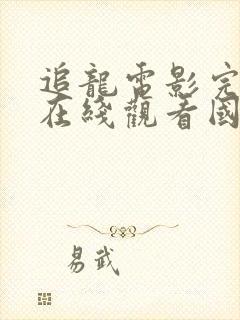 追龍電影完
在綫觀看國
易武